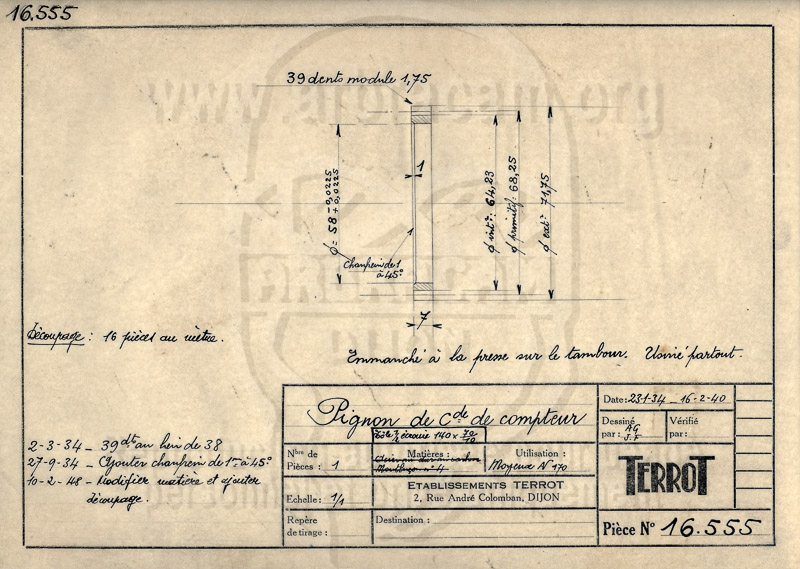 16.555
39 dents module 1,75
1
ø = 58 - 0,0225
+ 0,0225
ø intr : 64,23
ø primitif : 68,25
ø extr : 71,75
Chanfrein de 1
à 45°
7
Découpage : 16 pièces au mètre.
Emmanché à la presse sur le tambour. Usiné partout.
2-3-34 - 39 dts au lieu de 38
27-9-34 - Ajouter chanfrein de 1mm à 45°
10-2-48 - Modifier matière et ajouter
découpage.
Pignon de Cde de compteur
140 x 70/10
Nbre de
Pièces : 1
Matières :
Utilisation :
Moyeux N° 170
Echelle : 1/1
ETABLISSEMENTS TERROT
2, Rue André Colomban, DIJON
Repère
de tirage :
Destination :
Date: 23-1-34 _ 16-2-40
Dessiné
par : RG
J.F
Vérifié
par :
TERROT
Pièce N° 16.555